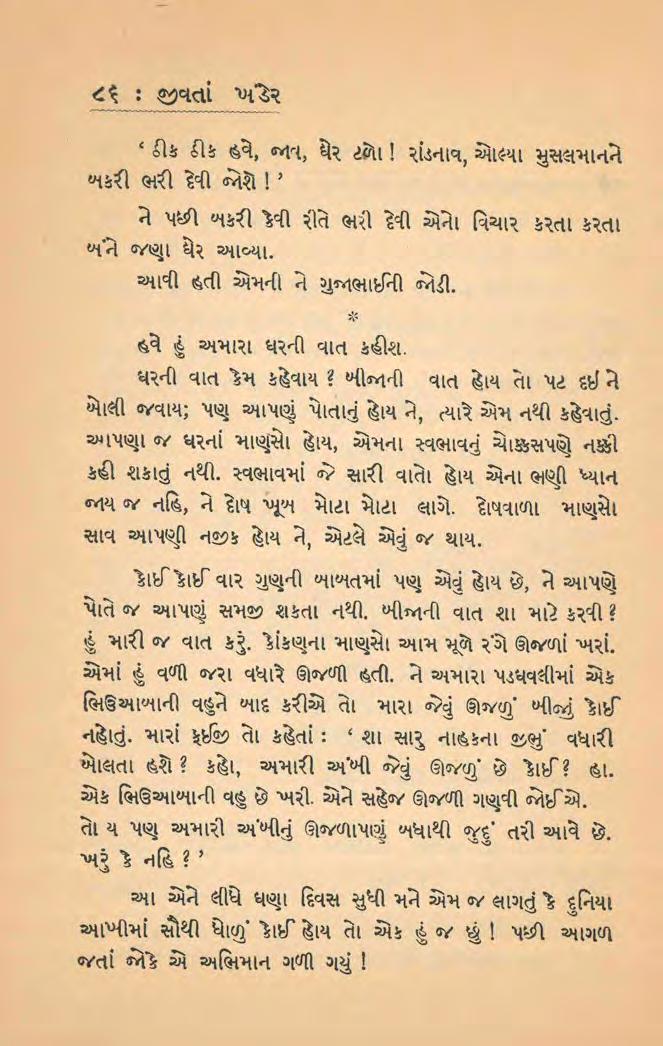 ૮૬ : જીવતાં ખંડેર
‘ ઠીક ઠીક હવે, જાવ, ઘેર ટળો ! રાંડનાવ, ઓલ્યા મુસલમાનને
બકરી ભરી દેવી જોશે ! ’
ને પછી બકરી કેવી રીતે ભરી દેવી એનો વિચાર કરતા કરતા
બંને જણા ઘેર આવ્યા.
આવી હતી એમની ને ગુજાભાઈની જોડી.
*
હવે હું અમારા ઘરની વાત કહીશ.
ઘરની વાત કેમ કહેવાય ? બીજાની વાત હોય તો પટ દઈ ને
બોલી જવાય; પણ આપણું પોતાનું હોય ને, ત્યારે એમ નથી કહેવાતું.
આપણા જ ઘરનાં માણસો હોય, એમના સ્વભાવનું ચોક્કસપણે નક્કી
કહી શકાતું નથી. સ્વભાવમાં જે સારી વાતો હોય એના ભણી ધ્યાન
જાય જ નહિ, ને દોષ ખૂબ મોટા મોટા લાગે. દોષવાળા માણસો
સાવ આપણી નજીક હોય ને, એટલે એવું જ થાય.
કોઈ કોઈ વાર ગુણની બાબતમાં પણ એવું હોય છે, ને આપણે
પોતે જ આપણું સમજી શકતા નથી. બીજાની વાત શા માટે કરવી ?
હું મારી જ વાત કરું. કોંકણના માણસો આમ મૂળે રંગે ઊજળાં ખરાં.
એમાં હું વળી જરા વધારે ઊજળી હતી. ને અમારા પડધવલીમાં એક
ભિઉઆબાની વહુને બાદ કરીએ તો મારા જેવું ઊજળું બીજું કોઈ
નહોતું. મારાં ફઈજી તો કહેતાં : ‘ શા સારુ નાહકના જીભું વધારી
બોલતા હશે ? કહો, અમારી અંબી જેવું ઊજળું છે કોઈ ? હા.
એક ભિઉઆબાની વહુ છે ખરી. એને સહેજ ઊજળી ગણવી જોઈએ.
તો ય પણ અમારી અંબીનું ઊજળાપણું બધાથી જુદું તરી આવે છે.
ખરું કે નહિ ? ’
આ એને લીધે ઘણા દિવસ સુધી મને એમ જ લાગતું કે દુનિયા
આખીમાં સૌથી ધોળું કોઈ હોય તો એક હું જ છું ! પછી આગળ
જતાં જોકે એ અભિમાન ગળી ગયું !